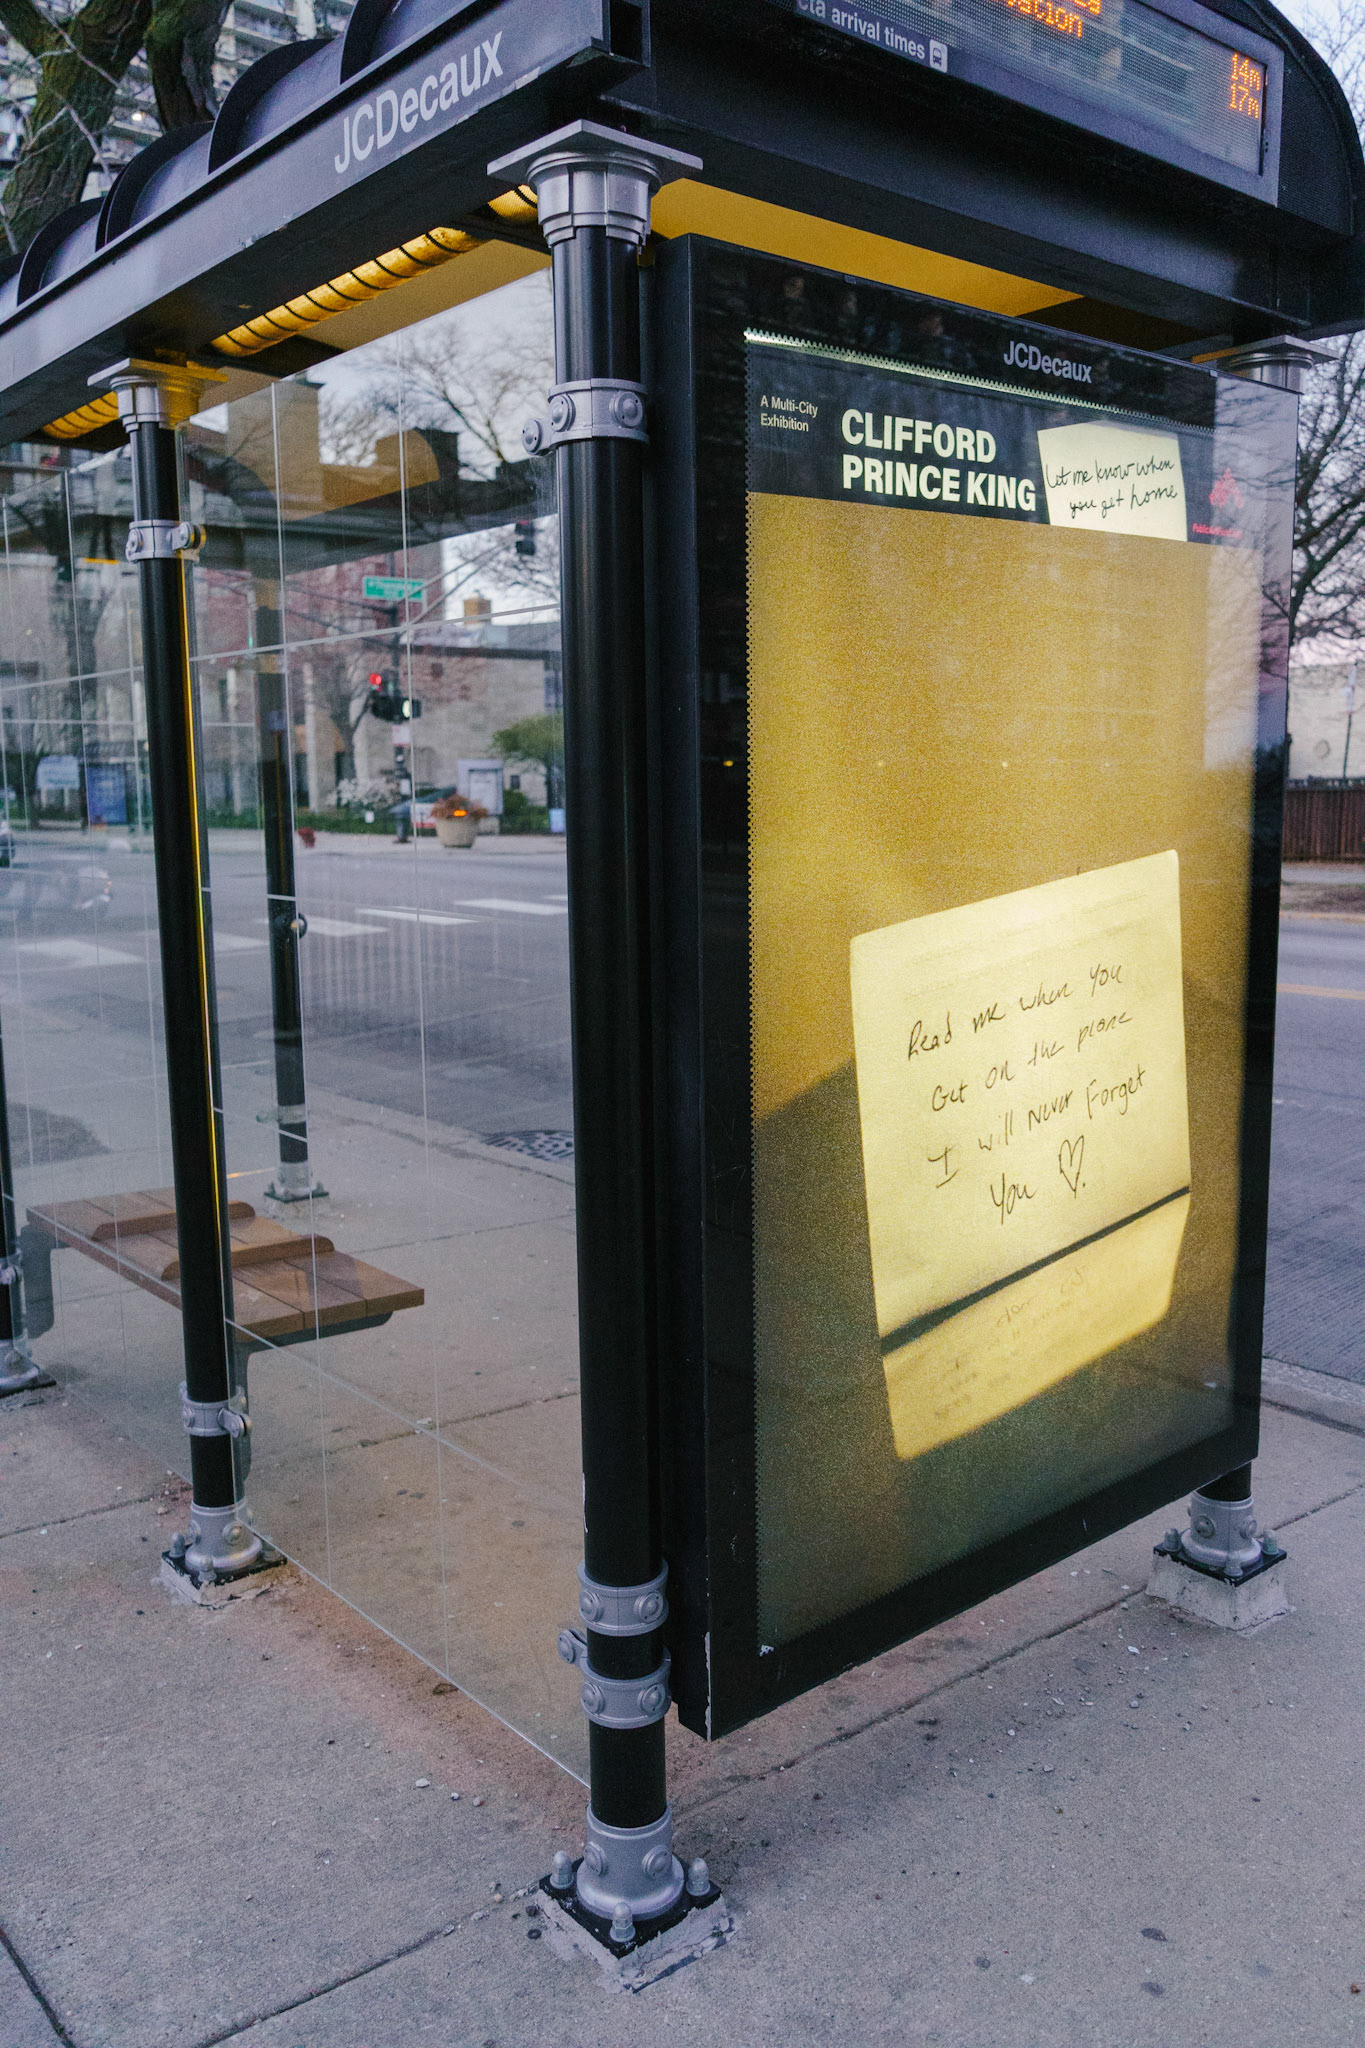 JCDecaux
cta arrival times
14m
17m
JCDecaux
A Multi-City
Exhibition
CLIFFORD
PRINCE KING
Let me know when
you get home
Read me when you
Get on the plane
I will Never Forget
You ♡.